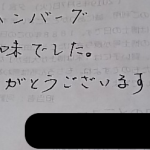 ハンバーグ
味でした。
がとうございます